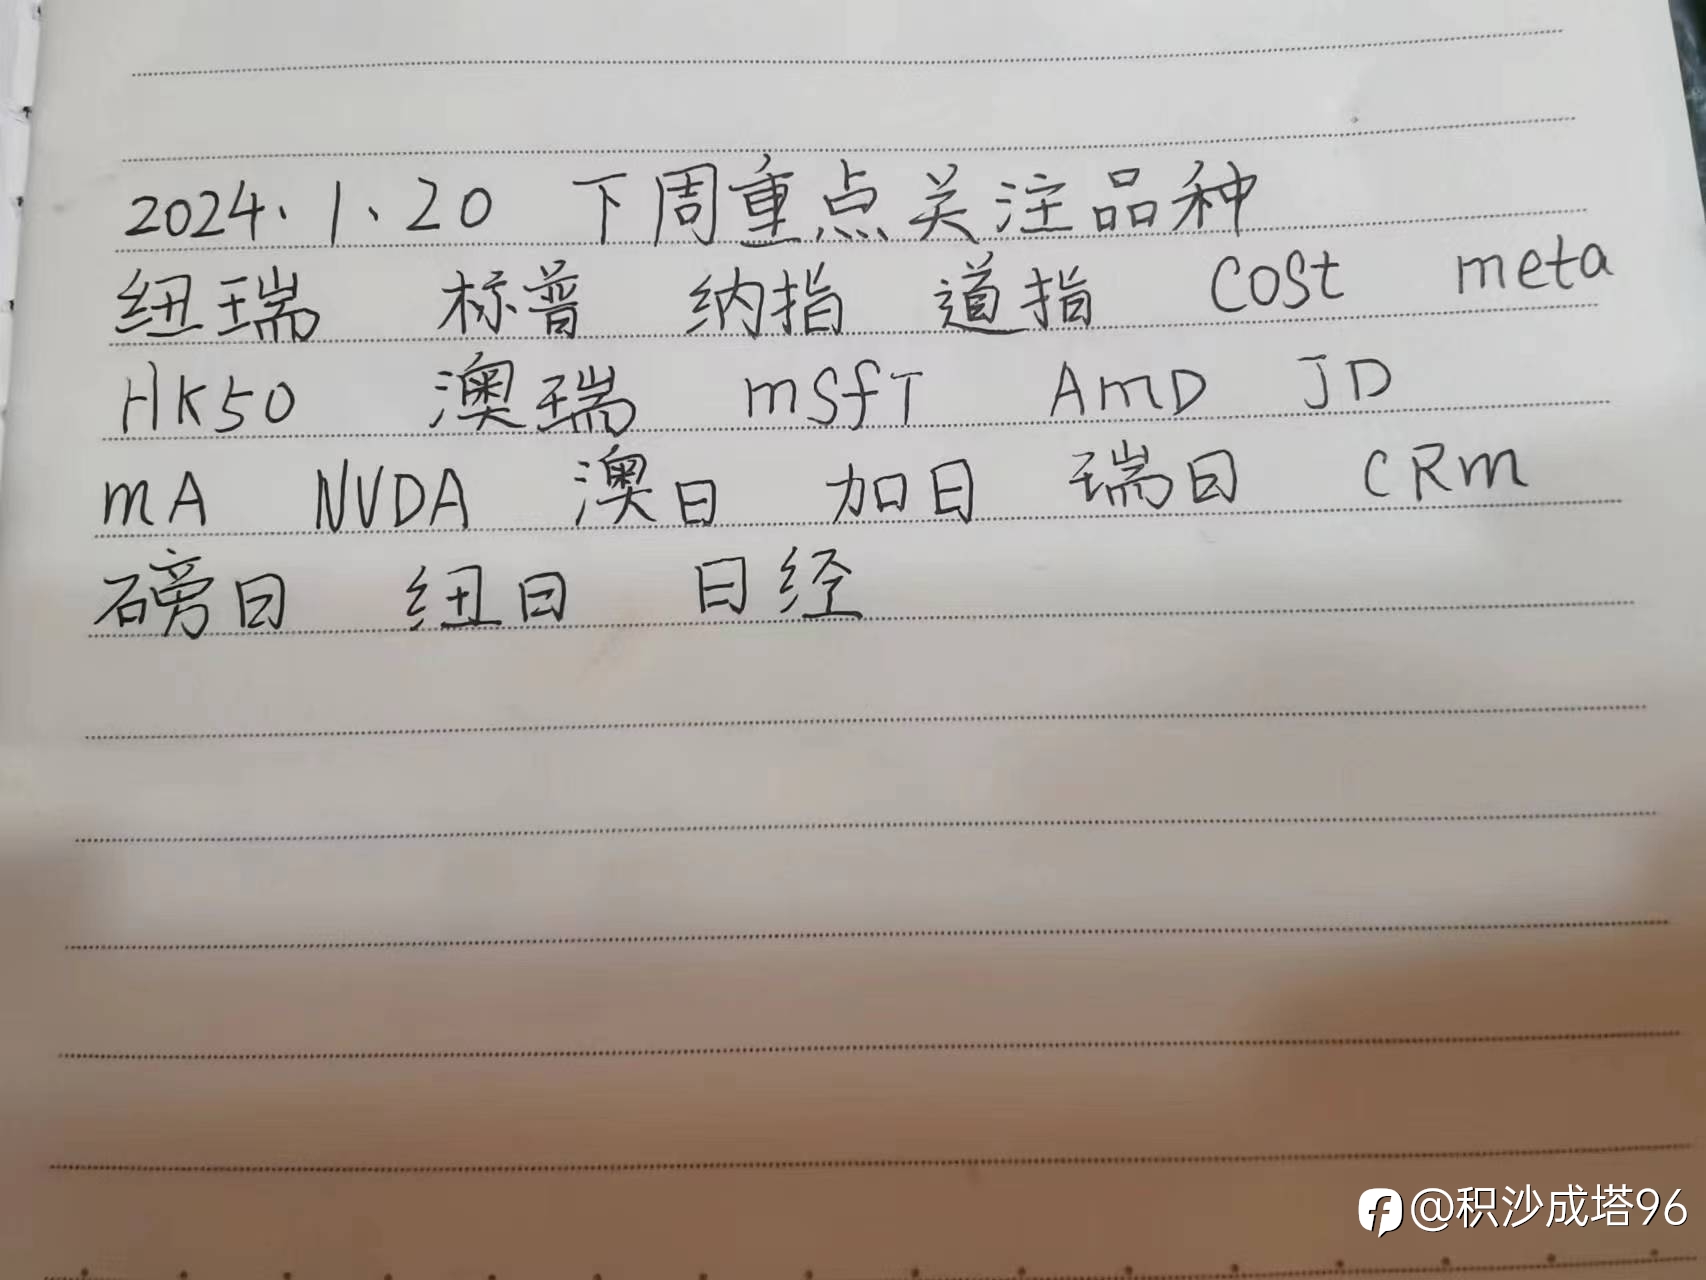 2024、1、20 下周重点关注品种
纽瑞 标普 纳指 道指 COSt meta
HK50 澳瑞 mSfT AmD JD
mA NVDA 澳日 加日 瑞日 CRm
磅日 纽日 日经
@积沙成塔96